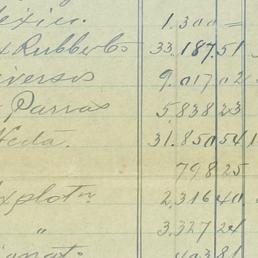 exico. 1.300 =
x Rubber Co 33.187.51
iversos 9.017 02
Parras 5.838 23
Neda. 31.850 54 1
798 25
xplotn 2.316 40
" 3.327 24